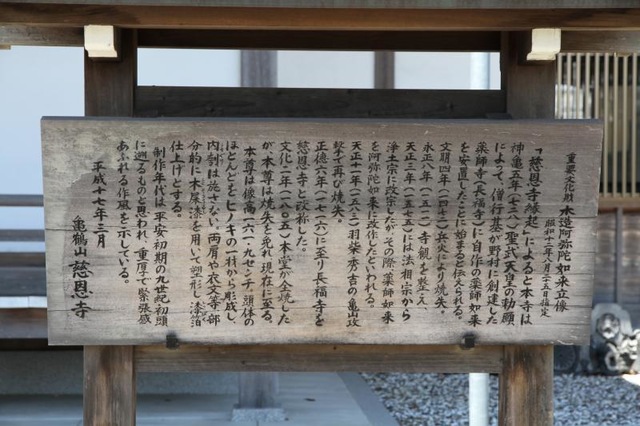 重要文化財 木造阿弥陀如来立像
昭和十二年八月二十五日指定
「慈恩寺縁起」によると本寺は
神亀五年(七二八)聖武天皇の勅願
によって、僧行基が野村に創建した
薬師寺(長福寺)に自作の薬師如来
を安置したことに始まると伝えられる。
文明四年(一四七二)兵火により焼失。
永正八年(一五一一)寺観を整え、
天正三年(一五七五)には法相宗から
浄土宗に改宗したが、その際、薬師如来
を阿弥陀如来に改作したといわれる。
天正十一年(一五八三)羽柴秀吉の亀山攻
撃で再び焼失。
正徳六年(一七一六)に至り長福寺を
慈恩寺と改称した。
文化二年(一八〇五)本堂が全焼した
が、本尊は焼失を免れ現在に至る。
本尊は像高一六一・九センチ、頭体の
ほとんどをヒノキの一材から彫成し、
内刳は施さない。両肩や衣文等部
分的に木屎漆を用いて塑形し、漆箔
仕上げとする。
制作年代は、平安初期の九世紀初頭
に遡るものと思われ、重厚で緊張感
あふれる作風を示している。
平成十七年三月
亀鶴山 慈恩寺